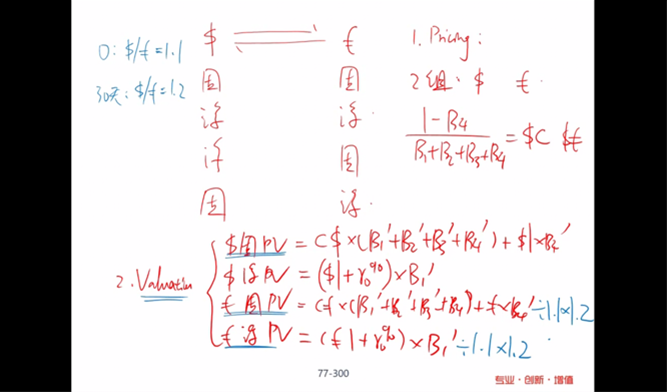 0: $/€=1.1
30天: $/€=1.2
$ €
固 固
浮 浮
浮 固
固 浮
1. Pricing:
2组: $ €
1-B4 / B1+B2+B3+B4 = $C €
2. Valuation
$固PV = C$×(B1'+B2'+B3'+B4')+$1×B4'
$浮PV = ($1+r0^90)×B1'
€固PV = C€×(B1'+B2'+B3'+B4')+€×B4'÷1.1×1.2
€浮PV = (€1+r0^90)×B1'÷1.1×1.2
77-300
专业·创新·增值